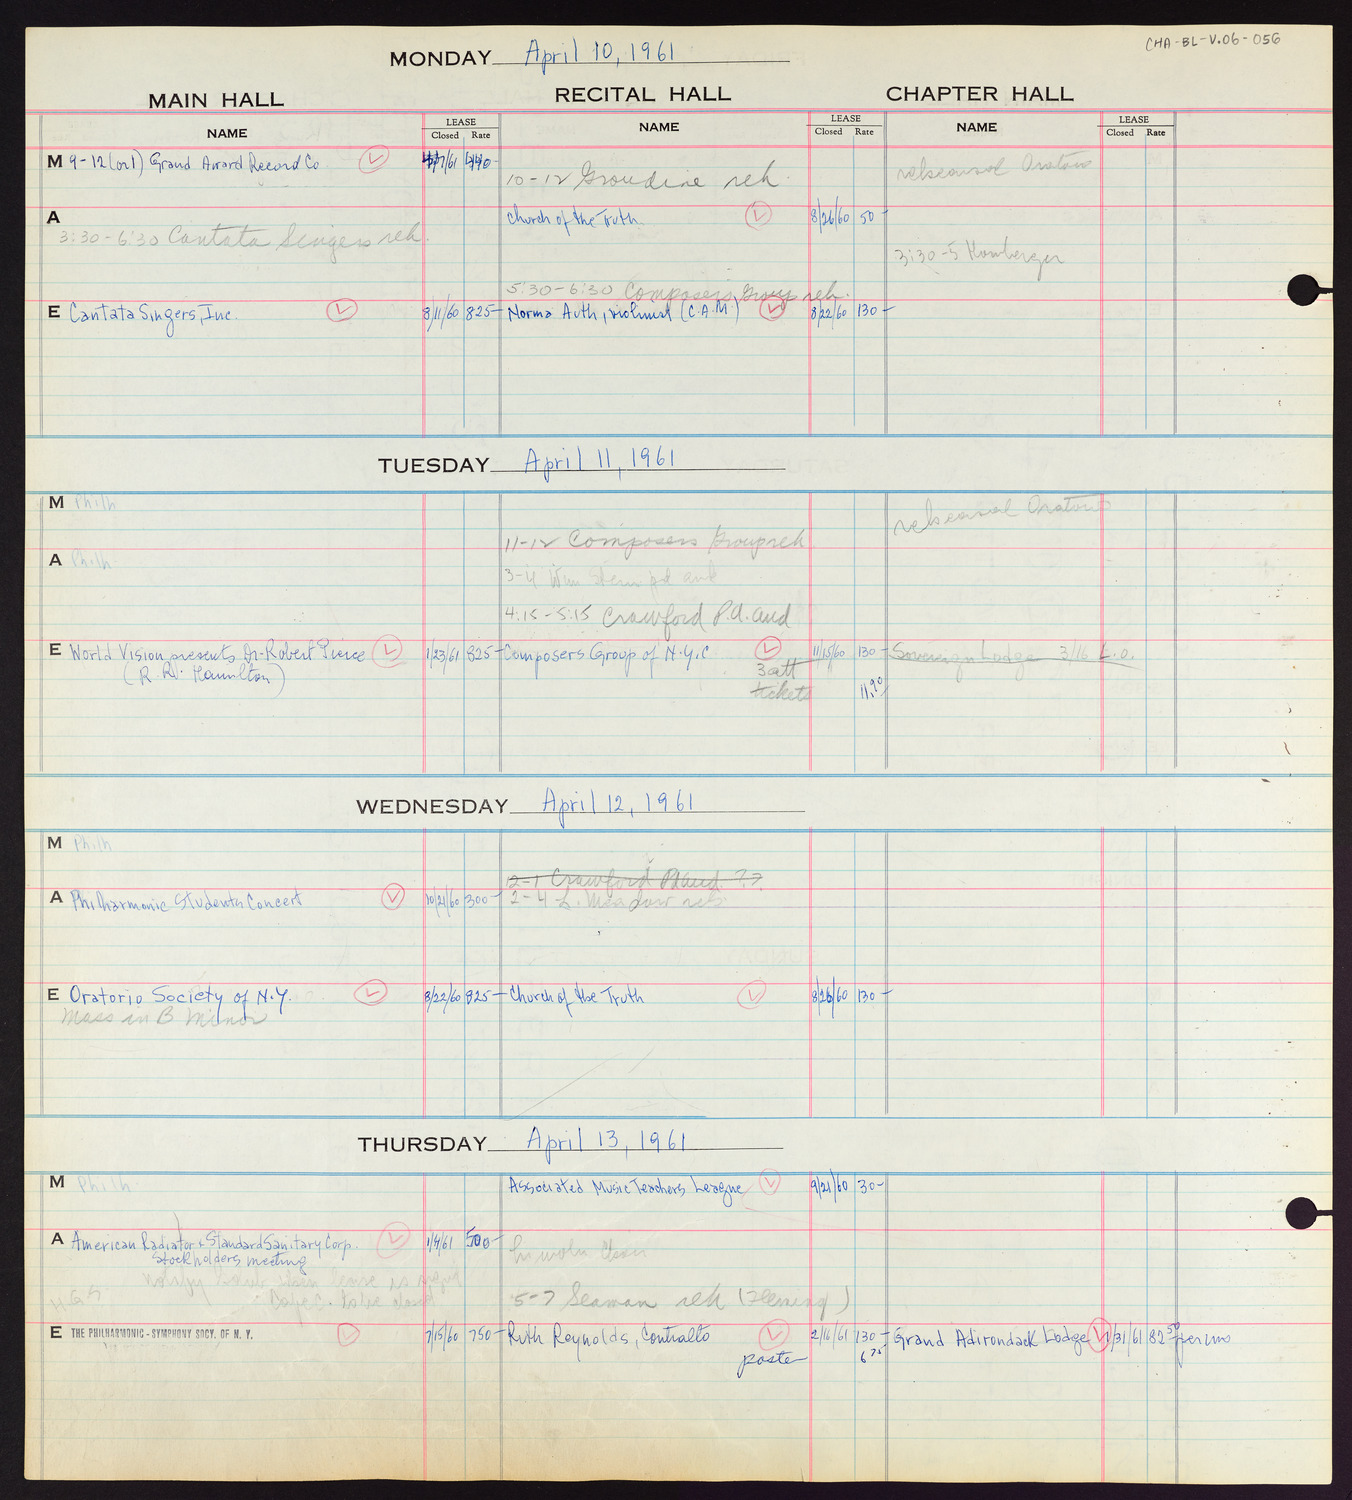 CHA-BL-V.06-056
MONDAY April 10, 1961
MAIN HALL RECITAL HALL CHAPTER HALL
NAME LEASE Closed Rate NAME LEASE Closed Rate NAME LEASE Closed Rate
M 9-12 (or 1) Grand Award Record Co /7/61 440-
10-12 rek
rehearsal Oratorio
A
Church of the Truth 8/26/60 50-
3:30-6:30 Cantata Singers reh.
3:30-5 Homberger
5:30-6:30 Composers Group reh.
E Cantata Singers, Inc. 8/11/60 825- Norma Auth, violinist (C.A.M) 8/22/60 130-
TUESDAY April 11, 1961
M Philh
rehearsal Oratorio
11-12 Composers Group reh
A Philh
3-4 Wm Stern pd aud
4:15-5:15 Crawford P.d. aud
E World Vision presents Dr. Robert Pierce 1/23/61 825- Composers Group of N.Y.C 11/15/60 130- Sovereign Lodge 3/16 L.O.
(R. W. Hamilton)
3 att
tickets 11.90
WEDNESDAY April 12, 1961
M Philh
12-1 Crawford Pd aud ??
A Philharmonic Students Concert 10/21/60 300- 2-4 L. Meadow reh
E Oratorio Society of N.Y. 8/22/60 825- Church of the Truth 8/26/60 130-
Mass in B Minor
THURSDAY April 13, 1961
M Philh
Associated Music Teachers League 9/21/60 30-
A American Radiator & Standard Sanitary Corp. 1/4/61 500-
Stockholders meeting
notify when lease is signed
Cafe C. to be closed
5-7 Seaman reh (Fleming)
E THE PHILHARMONIC-SYMPHONY SOCY. OF N. Y. 7/15/60 750- Ruth Reynolds, Contralto 2/16/61 130- Grand Adirondack Lodge 1/31/61 82.50 per uno
poster 6.75